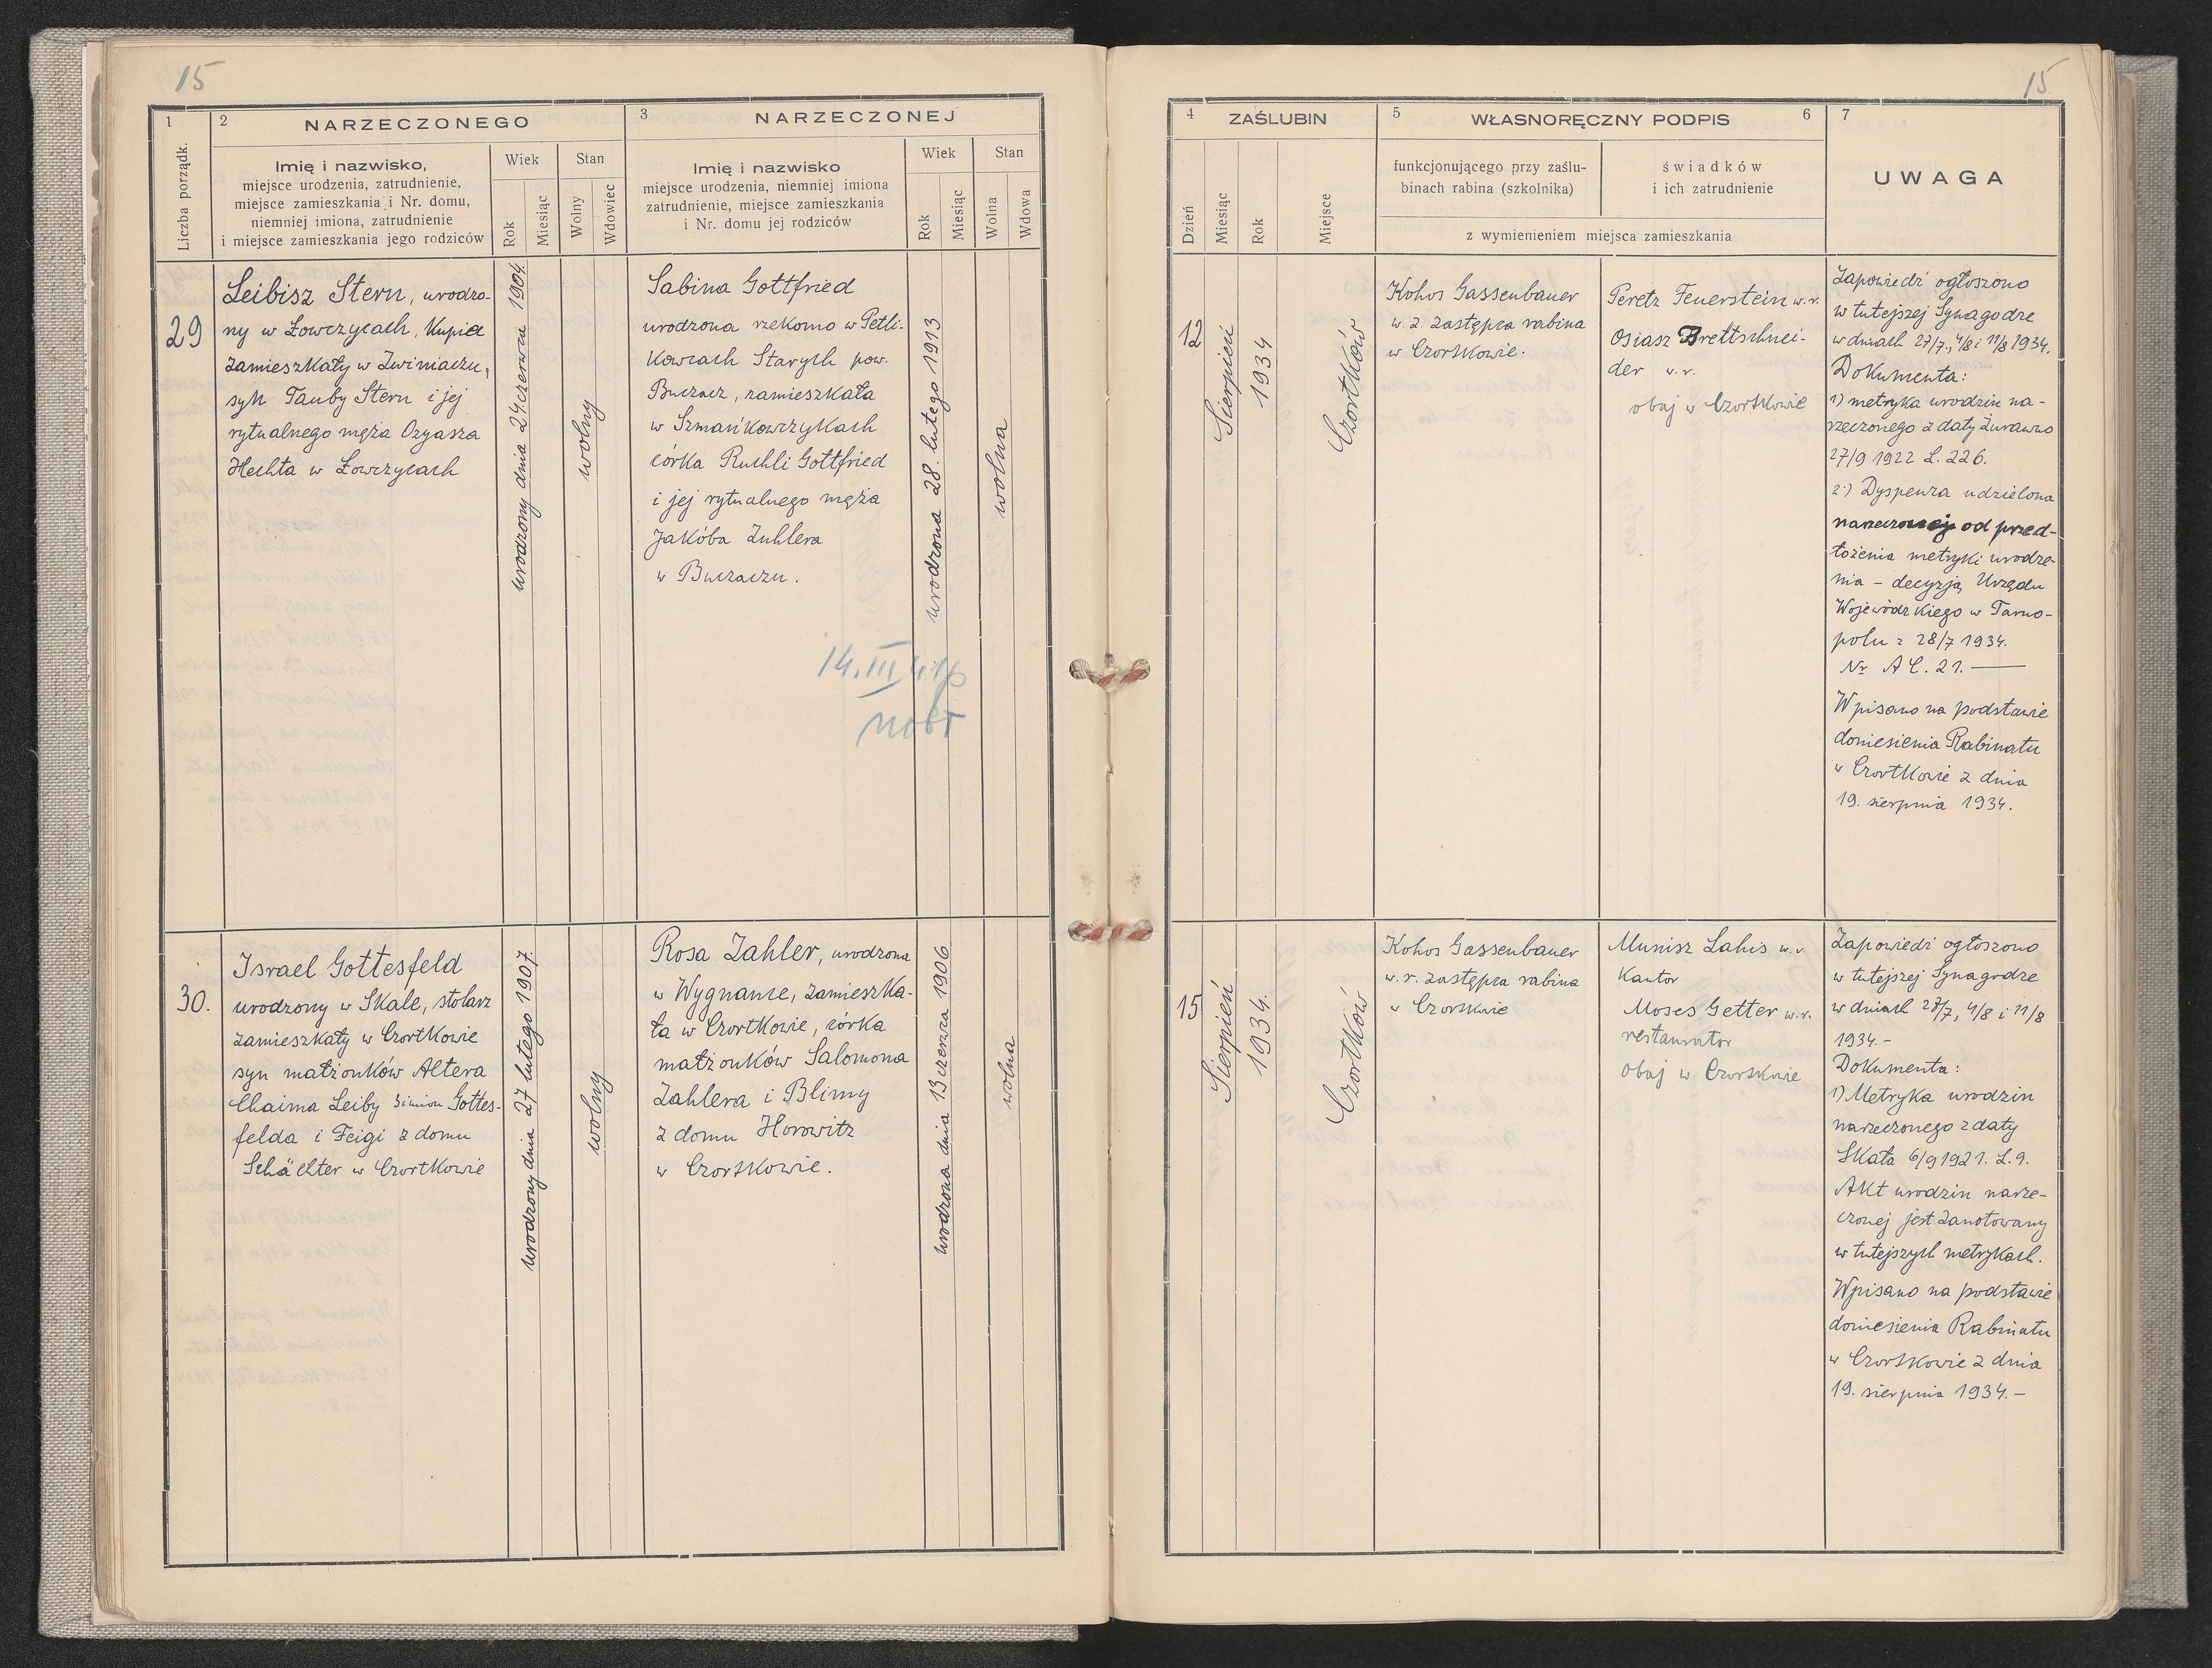 15
1
2
NARZECZONEGO
3
NARZECZONEJ
Liczba porządk.
Imię i nazwisko,
miejsce urodzenia, zatrudnienie,
miejsce zamieszkania i Nr. domu,
niemniej imiona, zatrudnienie
i miejsce zamieszkania jego rodziców
Wiek
Rok
Miesiąc
Stan
Wolny
Wdowiec
Imię i nazwisko
miejsce urodzenia, niemniej imiona
zatrudnienie, miejsce zamieszkania
i Nr. domu jej rodziców
Wiek
Rok
Miesiąc
Stan
Wolna
Wdowa
29
Leibisz Stern, urodzo-
ny w Łowczycach, Kupiec
zamieszkały w Zwiniaczu,
syn Tauby Stern i jej
rytualnego męża Ozyasza
Hechta w Łowczycach
urodzony dnia 24 czerwca 1904
wolny
Sabina Gottfried
urodzona rzekomo w Petli-
kowcach Starych pow.
Buczacz, zamieszkała
w Szmańkowczykach
córka Ruchli Gottfried
i jej rytualnego męża
Jakóba Zuhlera
w Buczaczu.
urodzona 28. lutego 1913
wolna
14.III
30.
Israel Gottesfeld
urodzony w Skale, stolarz
zamieszkały w Czortkowie
syn małżonków Altera
Chaima Leiby 3 imion Gottes-
felda i Feigi z domu
Schächter w Czortkowie
urodzony dnia 27 lutego 1907
wolny
Rosa Zahler, urodzona
w Wygnance, zamieszka-
ła w Czortkowie, córka
małżonków Salomona
Zahlera i Blimy
z domu Horowitz
w Czortkowie.
urodzona dnia 13 czerwca 1906
wolna
15
4
ZAŚLUBIN
5
WŁASNORĘCZNY PODPIS
6
7
Dzień
Miesiąc
Rok
Miejsce
funkcjonującego przy zaślu-
binach rabina (szkolnika)
świadków
i ich zatrudnienie
z wymienieniem miejsca zamieszkania
UWAGA
12
Sierpień
1934
Czortków
Kohos Gassenbauer
w. r. zastępca rabina
w Czortkowie.
Peretz Feuerstein w.r.
Osiasz Brettschnei-
der w.r.
obaj w Czortkowie
Zapowiedź ogłoszono
w tutejszej Synagodze
w dniach 27/7., 4/8 i 11/8 1934.
Dokumenta:
1) metryka urodzin na-
rzeczonego z daty Żurawno
27/9 1922 L. 226.
2) Dyspenza udzielona
narzeczonej od przed-
łożenia metryki urodze-
nia – decyzją Urzędu
Wojewódzkiego w Tarno-
polu z 28/7 1934.
Nr AC. 21. —
Wpisano na podstawie
doniesienia Rabinatu
w Czortkowie z dnia
19. sierpnia 1934.
15
Sierpień
1934.
Czortków
Kohos Gassenbauer
w. r. zastępca rabina
w Czortkowie
Munisz Lahis w.r.
Kantor
Moses Getter w.r.
restaurator
obaj w Czortkowie
Zapowiedź ogłoszono
w tutejszej Synagodze
w dniach 27/7, 4/8 i 11/8
1934.-
Dokumenta:
1) Metryka urodzin
narzeczonego z daty
Skała 6/9 1921. L. 9.
Akt urodzin narze-
czonej jest zanotowany
w tutejszych metrykach.
Wpisano na podstawie
doniesienia Rabinatu
w Czortkowie z dnia
19. sierpnia 1934.–